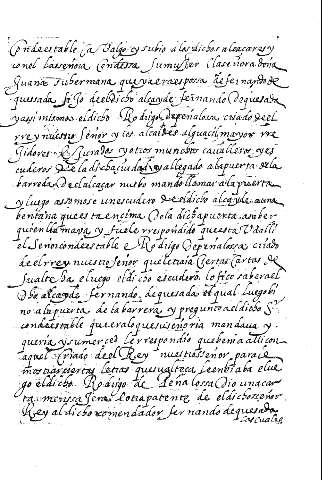 Condestable ca valgo y subio a los dichos alcaçares y
con el la señora Condessa su muger e la señora doña
Juana su hermana que ya era esposa de fernando de
quesada hijo del dicho alcayde fernando de quesada
y assi mismo el dicho Rodrigo de peñalosa criado del
rrey nuestro señor y los alcaldes alguacil mayor rre
gidores y Jurados y otros muchos cavalleros y es
cuderos de la dicha ciudad y allegado a la puerta de la
barrera del alcaçar hubo mando llamar a la puerta
y luego assomose un escudero del dicho alcayde a una
bentana que esta encima de la dicha puerta a saber
quien llamava y fuele rrespondido que estava alli
el señor condestable e Rodrigo de peñalosa criado
del rrey nuestro señor que le traia ciertas cartas de
su alteza e luego el dicho escudero lo fizo saber al
dicho alcayde fernando de quesada el qual luego bi
no a la puerta de la barrera y pregunto al dicho Sr
condestable que era lo que su señoria mandava y
queria y su merced le rrespondio que benia alli con
aquel criado del Rey nuestro señor para le
mostrar ciertas letras que su alteza le enbiaba e lue
go el dicho Rodrigo de Penalossa dio una car
ta mensajera e otra patente de el dicho señor
Rey al dicho comendador fernando de quesada
las cuales